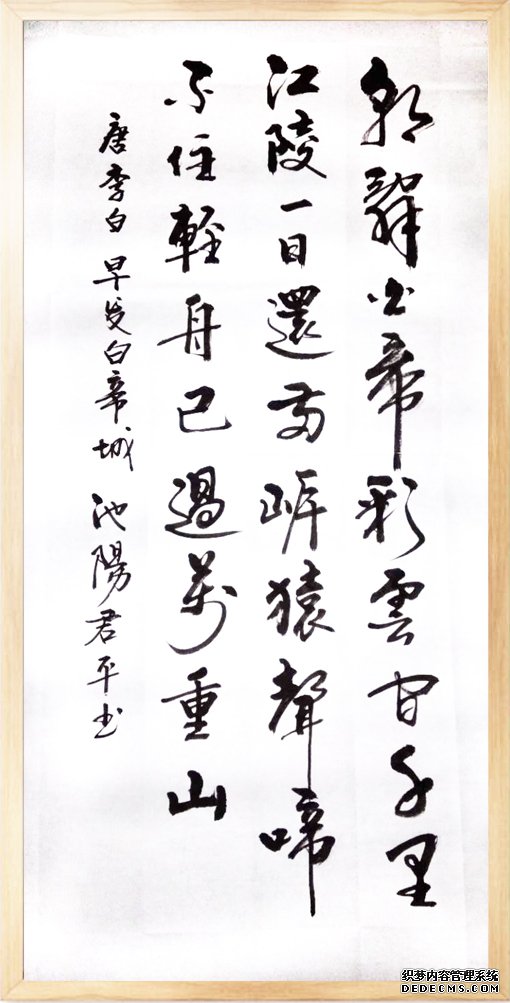 朝辭白帝彩雲間千里
江陵一日還兩岸猿聲啼
不住輕舟已過萬重山
唐李白早发白帝城 池陽君平书
织梦内容管理系统
DEDECMS.COM